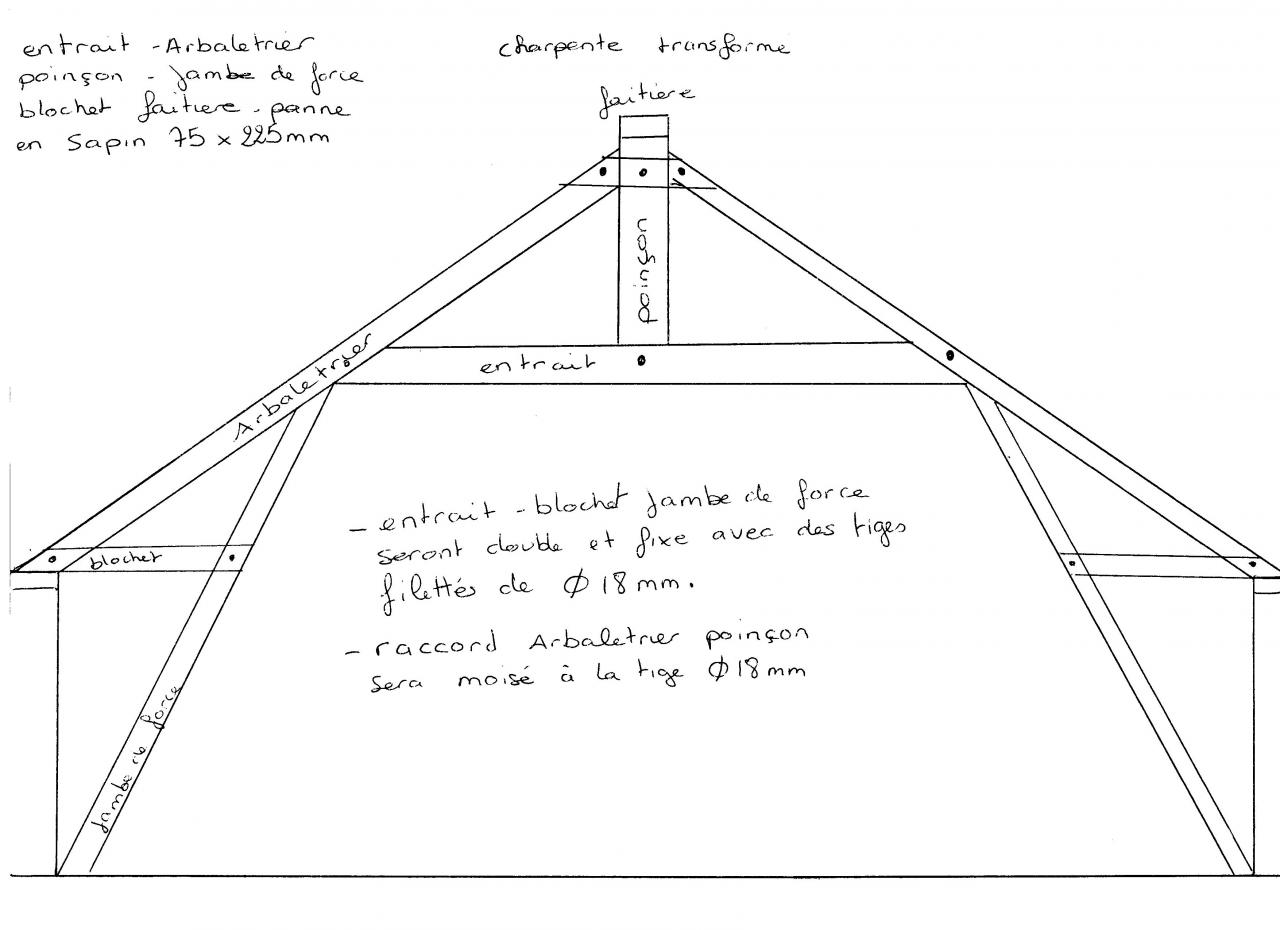 entrait - Arbaletrier
poinçon - jambe de force
blochet faitiere - panne
en sapin 75 x 225mm
charpente transforme
faitiere
poinçon
entrait
Arbaletrier
blochet
jambe de force
- entrait - blochet jambe de force
seront double et fixe avec des tiges
filettés de Ø 18 mm.
- raccord Arbaletrier poinçon
sera moisé à la tige Ø 18 mm